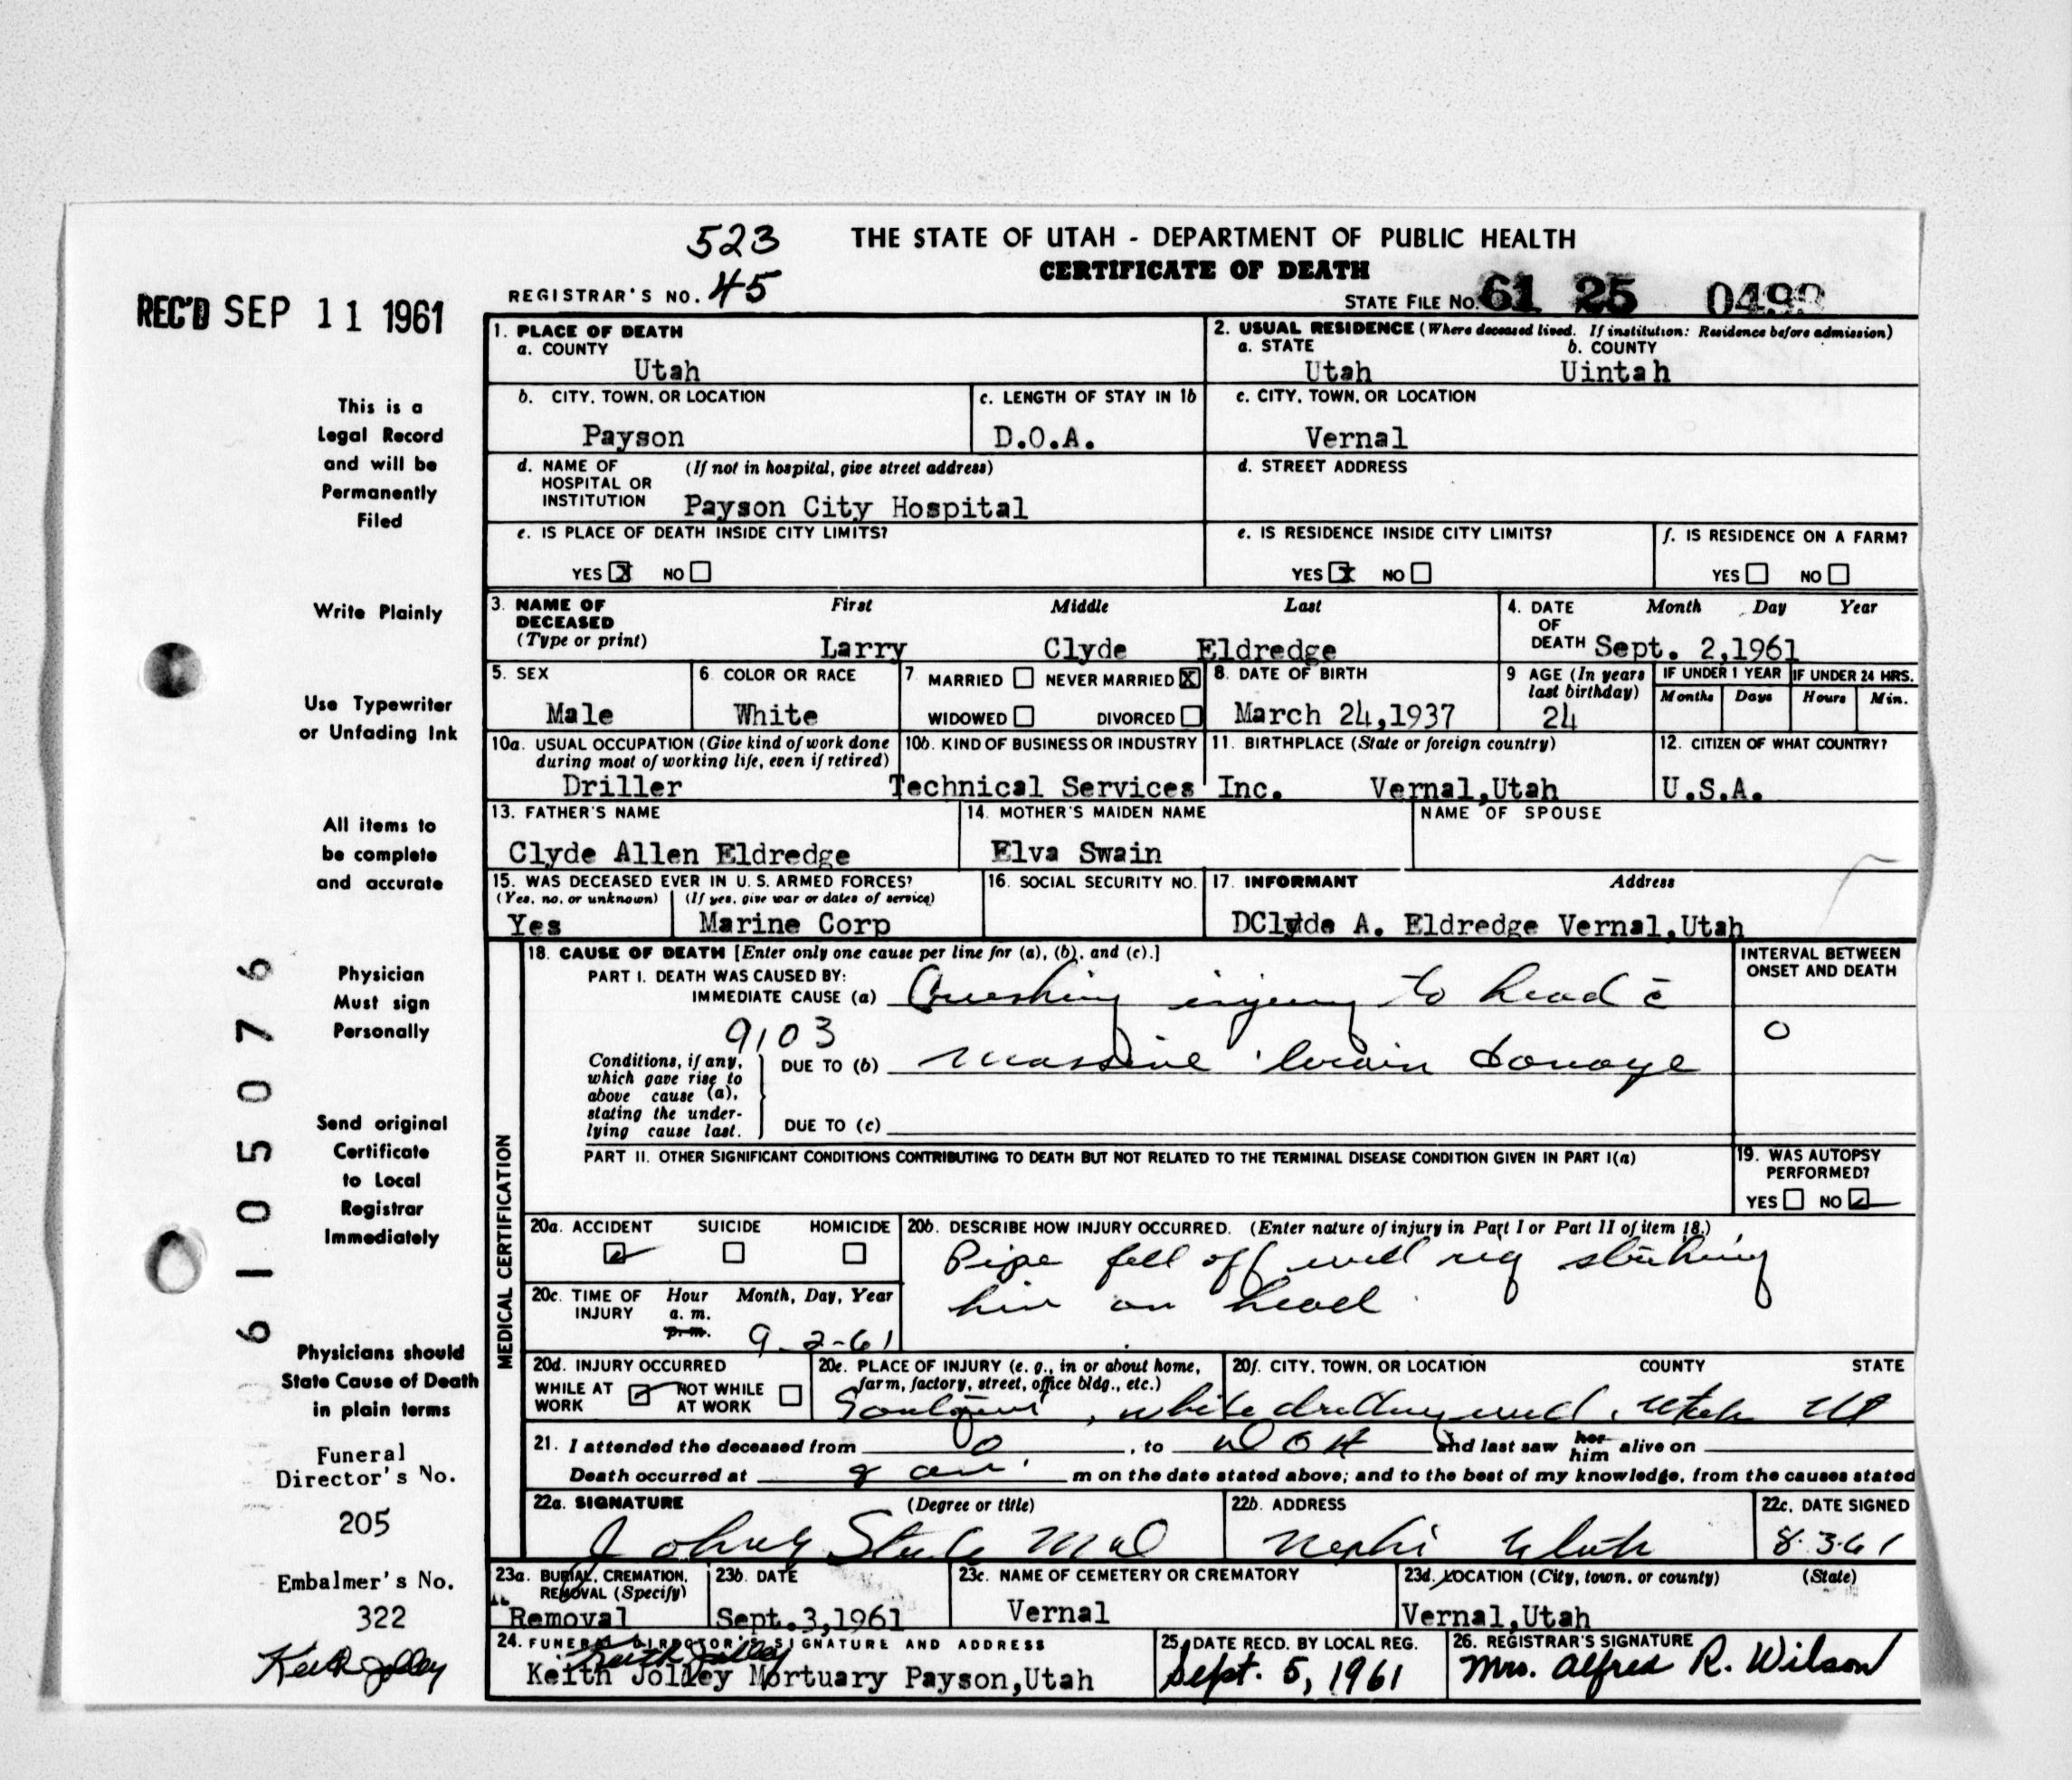 523
THE STATE OF UTAH - DEPARTMENT OF PUBLIC HEALTH
CERTIFICATE OF DEATH
REGISTRAR'S NO. 45
STATE FILE NO. 61 25 0499
REC'D SEP 11 1961
This is a
Legal Record
and will be
Permanently
Filed
Write Plainly
Use Typewriter
or Unfading Ink
All items to
be complete
and accurate
Physician
Must sign
Personally
Send original
Certificate
to Local
Registrar
Immediately
Physicians should
State Cause of Death
in plain terms
Funeral
Director's No.
205
Embalmer's No.
322
Keith Jolley
6105076
1. PLACE OF DEATH
a. COUNTY
Utah
2. USUAL RESIDENCE (Where deceased lived. If institution: Residence before admission)
a. STATE b. COUNTY
Utah Uintah
b. CITY, TOWN, OR LOCATION
Payson
c. LENGTH OF STAY IN 1b
D.O.A.
c. CITY, TOWN, OR LOCATION
Vernal
d. NAME OF (If not in hospital, give street address)
HOSPITAL OR
INSTITUTION Payson City Hospital
d. STREET ADDRESS
e. IS PLACE OF DEATH INSIDE CITY LIMITS?
YES X NO
e. IS RESIDENCE INSIDE CITY LIMITS?
YES X NO
f. IS RESIDENCE ON A FARM?
YES NO
3. NAME OF First Middle Last
DECEASED
(Type or print) Larry Clyde Eldredge
4. DATE Month Day Year
OF
DEATH Sept. 2,1961
5. SEX
Male
6 COLOR OR RACE
White
7 MARRIED NEVER MARRIED X
WIDOWED DIVORCED
8. DATE OF BIRTH
March 24,1937
9 AGE (In years
last birthday)
24
IF UNDER 1 YEAR
Months Days
IF UNDER 24 HRS.
Hours Min.
10a. USUAL OCCUPATION (Give kind of work done
during most of working life, even if retired)
Driller
10b. KIND OF BUSINESS OR INDUSTRY
Technical Services Inc.
11. BIRTHPLACE (State or foreign country)
Vernal,Utah
12. CITIZEN OF WHAT COUNTRY?
U.S.A.
13. FATHER'S NAME
Clyde Allen Eldredge
14. MOTHER'S MAIDEN NAME
Elva Swain
NAME OF SPOUSE
15. WAS DECEASED EVER IN U. S. ARMED FORCES?
(Yes, no, or unknown) (If yes, give war or dates of service)
Yes Marine Corp
16. SOCIAL SECURITY NO.
17. INFORMANT Address
Clyde A. Eldredge Vernal,Utah
MEDICAL CERTIFICATION
18. CAUSE OF DEATH [Enter only one cause per line for (a), (b), and (c).]
PART I. DEATH WAS CAUSED BY:
IMMEDIATE CAUSE (a) Crushing injury to head c̄
9103
Conditions, if any,
which gave rise to
above cause (a),
stating the under-
lying cause last.
DUE TO (b) massive brain damage
DUE TO (c)
INTERVAL BETWEEN
ONSET AND DEATH
0
PART II. OTHER SIGNIFICANT CONDITIONS CONTRIBUTING TO DEATH BUT NOT RELATED TO THE TERMINAL DISEASE CONDITION GIVEN IN PART I(a)
19. WAS AUTOPSY
PERFORMED?
YES NO
20a. ACCIDENT SUICIDE HOMICIDE
20b. DESCRIBE HOW INJURY OCCURRED. (Enter nature of injury in Part I or Part II of item 18.)
Pipe fell off well rig striking
him on head
20c. TIME OF Hour Month, Day, Year
INJURY a. m.
p. m. 9-2-61
20d. INJURY OCCURRED
WHILE AT NOT WHILE
WORK AT WORK
20e. PLACE OF INJURY (e. g., in or about home,
farm, factory, street, office bldg., etc.)
20f. CITY, TOWN, OR LOCATION COUNTY STATE
while drilling well, Utah Ut
21. I attended the deceased from 0, to DOA and last saw her him alive on
Death occurred at am m on the date stated above; and to the best of my knowledge, from the causes stated
22a. SIGNATURE (Degree or title)
22b. ADDRESS
Nephi Utah
22c. DATE SIGNED
8-3-61
23a. BURIAL, CREMATION,
REMOVAL (Specify)
Removal
23b. DATE
Sept.3,1961
23c. NAME OF CEMETERY OR CREMATORY
Vernal
23d. LOCATION (City, town, or county) (State)
Vernal,Utah
24. FUNERAL DIRECTOR'S SIGNATURE AND ADDRESS
Keith Jolley
Keith Jolley Mortuary Payson,Utah
25. DATE RECD. BY LOCAL REG.
Sept. 5, 1961
26. REGISTRAR'S SIGNATURE
Mrs. Alfred R. Wilson